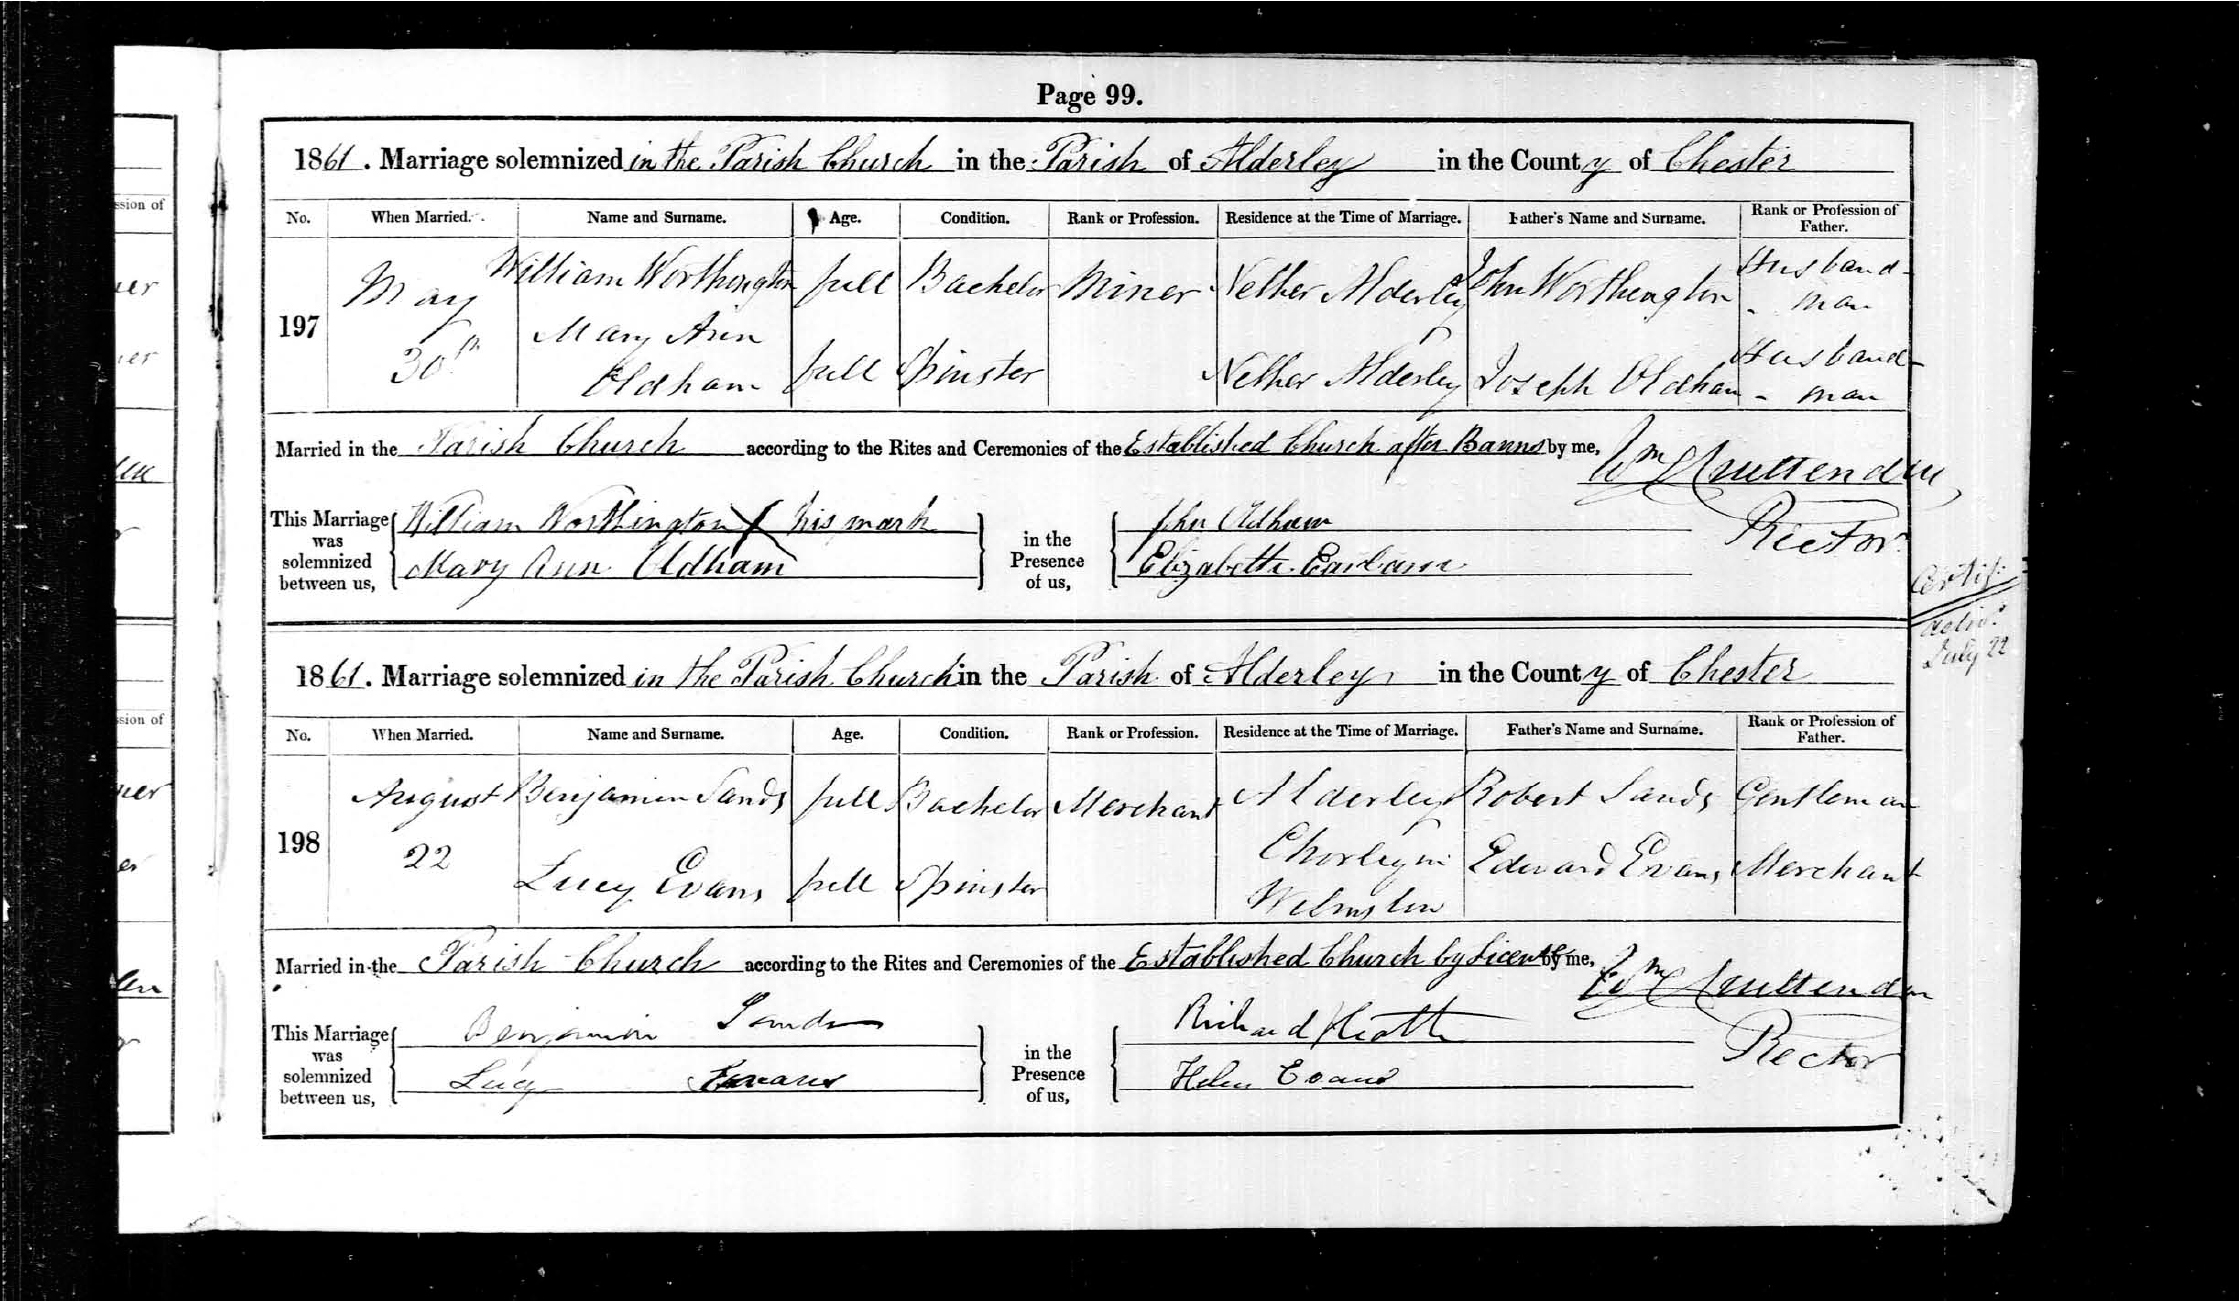 Page 99.
1861. Marriage solemnized in the Parish Church in the Parish of Alderley in the County of Chester
No. When Married. Name and Surname. Age. Condition. Rank or Profession. Residence at the Time of Marriage. Father's Name and Surname. Rank or Profession of Father.
197 May 30th William Worthington full Bachelor Miner Nether Alderley John Worthington Husband-man
Mary Ann Oldham full Spinster Nether Alderley Joseph Oldham Husband-man
Married in the Parish Church according to the Rites and Ceremonies of the Established Church after Banns by me, Wm
Rector
This Marriage was solemnized between us,
William Worthington X his mark
Mary Ann Oldham
in the Presence of us,
John Oldham
Elizabeth
Certif.
July 22
1861. Marriage solemnized in the Parish Church in the Parish of Alderley in the County of Chester
No. When Married. Name and Surname. Age. Condition. Rank or Profession. Residence at the Time of Marriage. Father's Name and Surname. Rank or Profession of Father.
198 August 22 Benjamin Sands full Bachelor Merchant Alderley Robert Sands Gentleman
Lucy Evans full Spinster Chorley in Wilmslow Edward Evans Merchant
Married in the Parish Church according to the Rites and Ceremonies of the Established Church by Licence by me, Wm
Rector
This Marriage was solemnized between us,
Benjamin Sands
Lucy Evans
in the Presence of us,
Richard Heath
Helen Evans